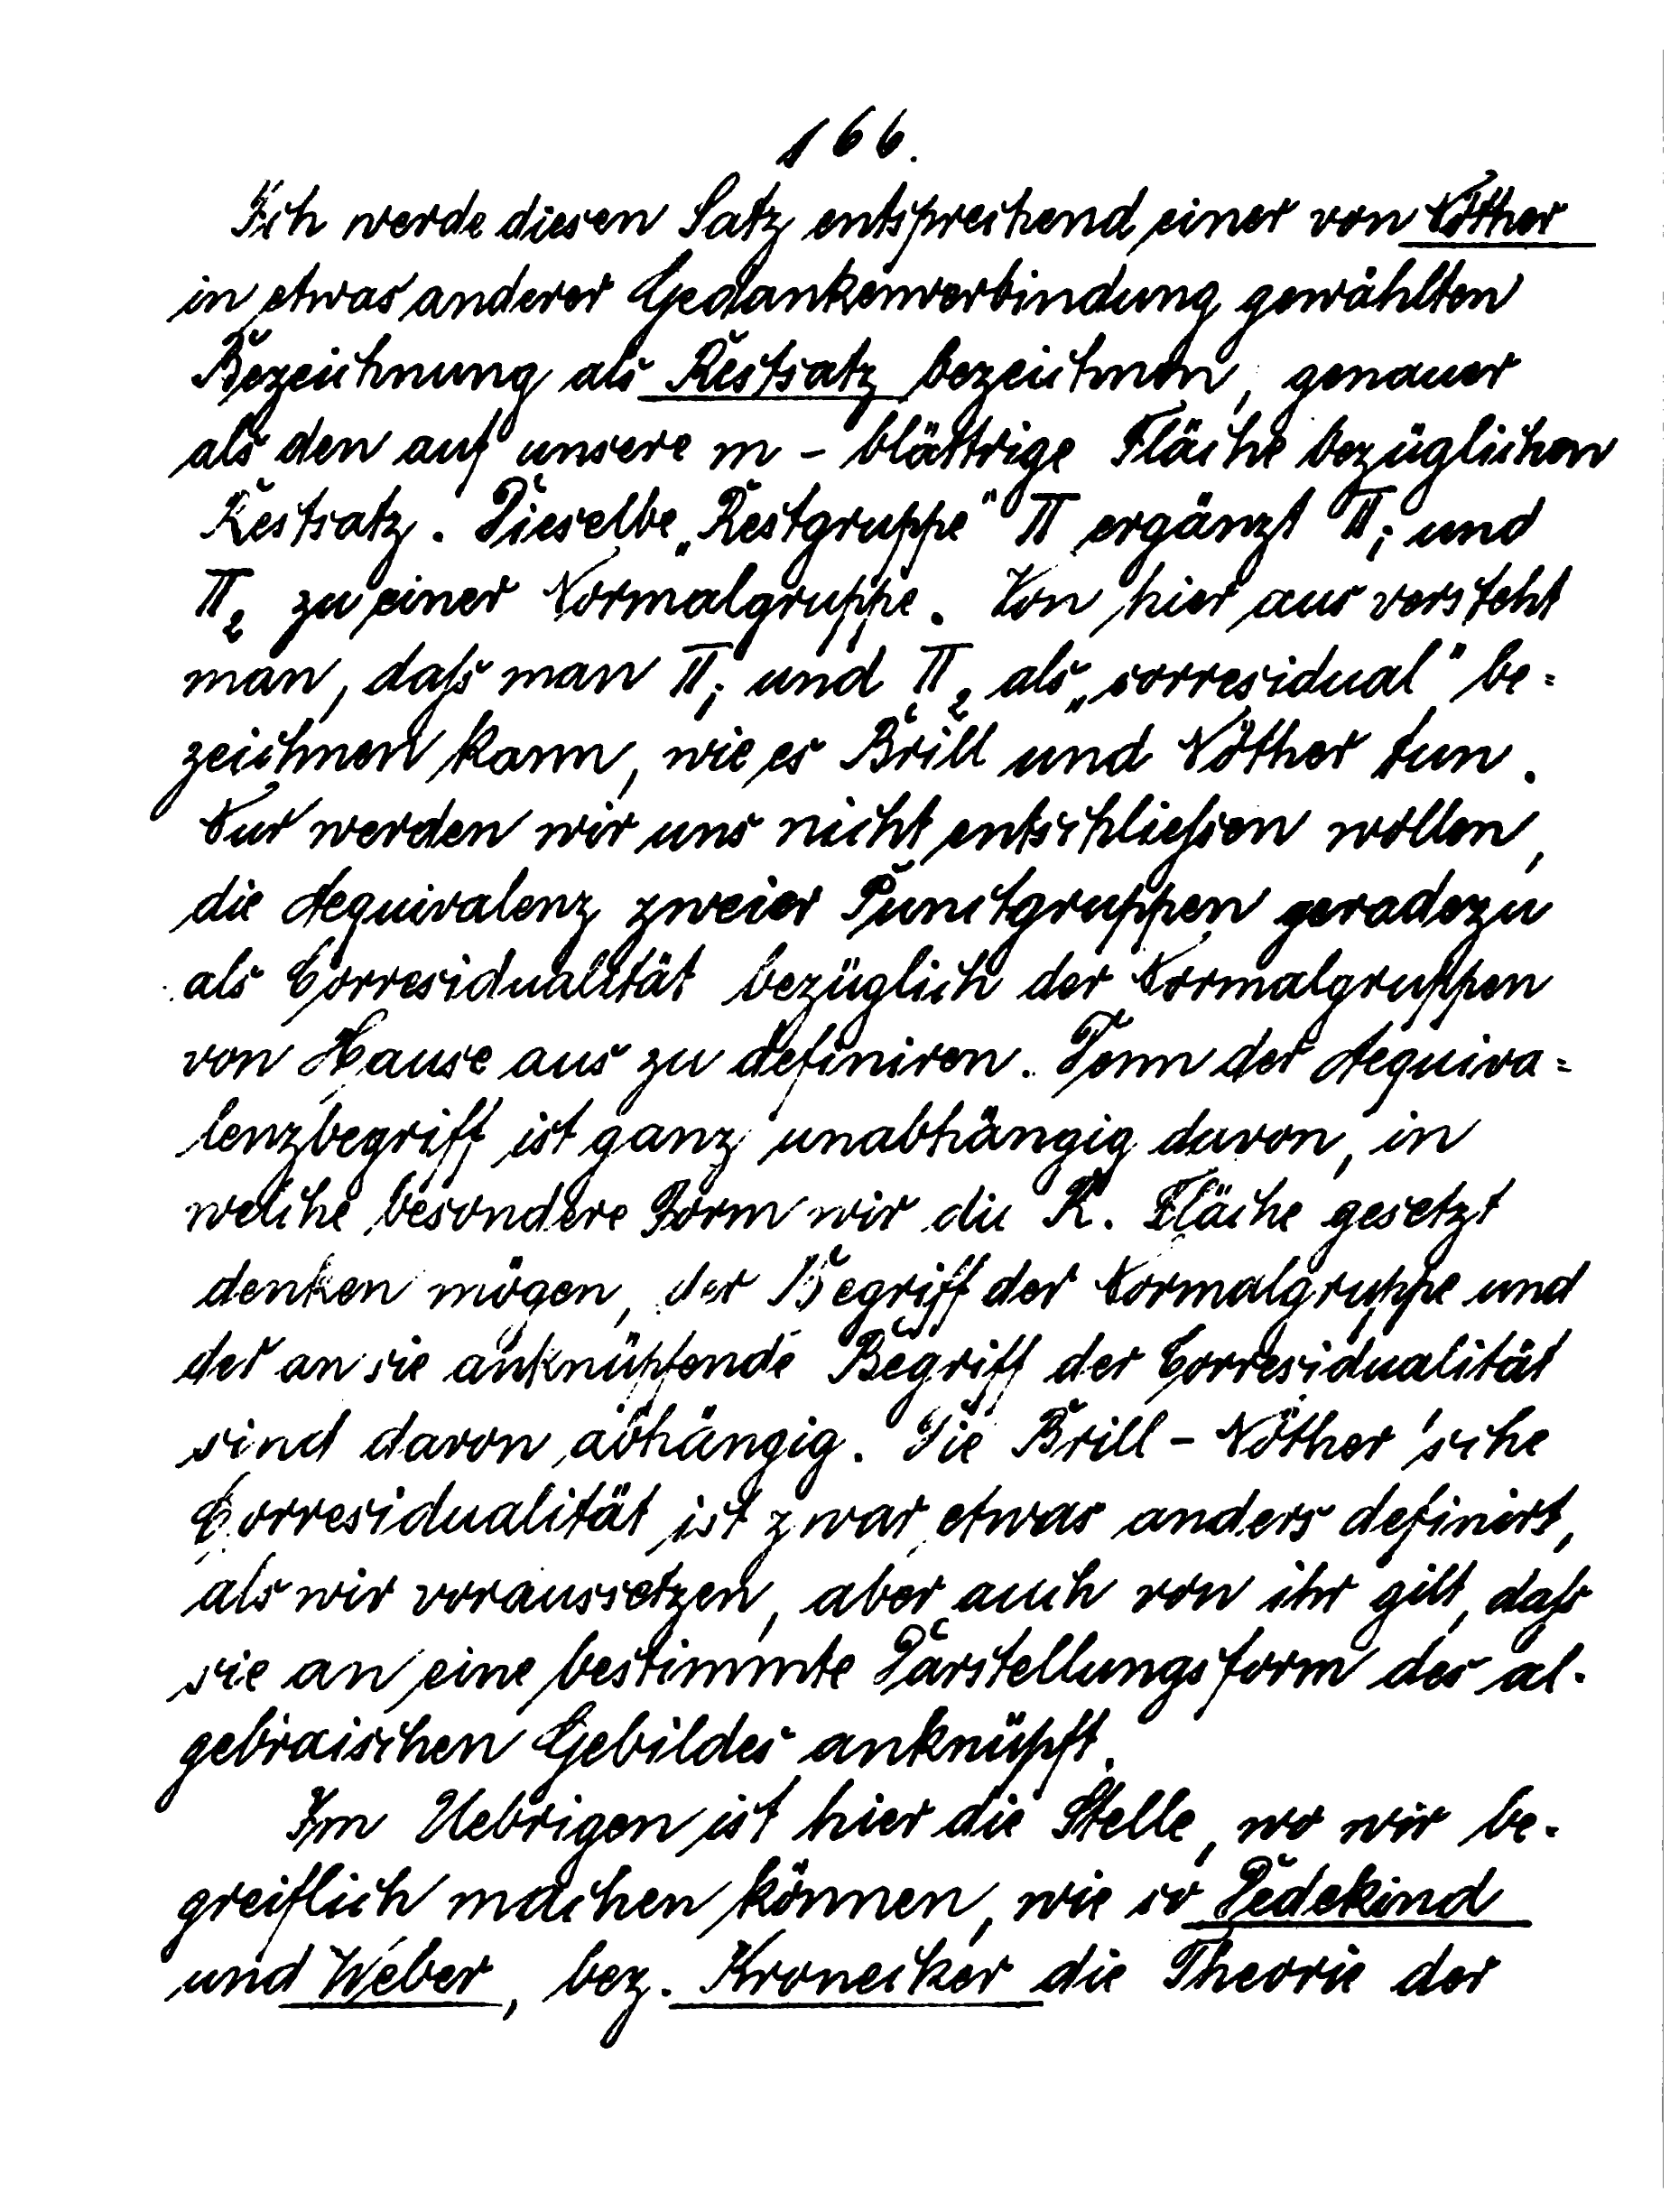 166.
Ich werde diesen Satz entsprechend einer von Nöther
in etwas anderer Gedankenverbindung gewählten
Bezeichnung als Restsatz bezeichnen, genauer
als den auf unsere m - blättrige Fläche bezüglichen
Restsatz. Dieselbe „Restgruppe“ Π ergänzt Π₁ und
Π₂ zu einer Normalgruppe. Von hier aus versteht
man, daß man Π₁ und Π₂ als „corresidual“ be=
zeichnen kann, wie es Brill und Nöther tun.
Nur werden wir uns nicht entschließen wollen,
die Aequivalenz zweier Punctgruppen geradezu
als Corresidualität bezüglich der Normalgruppen
von Hause aus zu definiren. Denn der Aequiva=
lenzbegriff ist ganz unabhängig davon, in
welche besondere Form wir die R. Fläche gesetzt
denken mögen, der Begriff der Normalgruppe und
der an sie anknüpfende Begriff der Corresidualität
sind davon abhängig. Die Brill - Nöther'sche
Corresidualität ist zwar etwas anders definirt,
als wir voraussetzen, aber auch von ihr gilt, daß
sie an eine bestimmte Darstellungsform des al-
gebraischen Gebildes anknüpft.
Im Uebrigen ist hier die Stelle, wo wir be-
greiflich machen können, wie so Dedekind
und Weber, bez. Kronecker die Theorie der